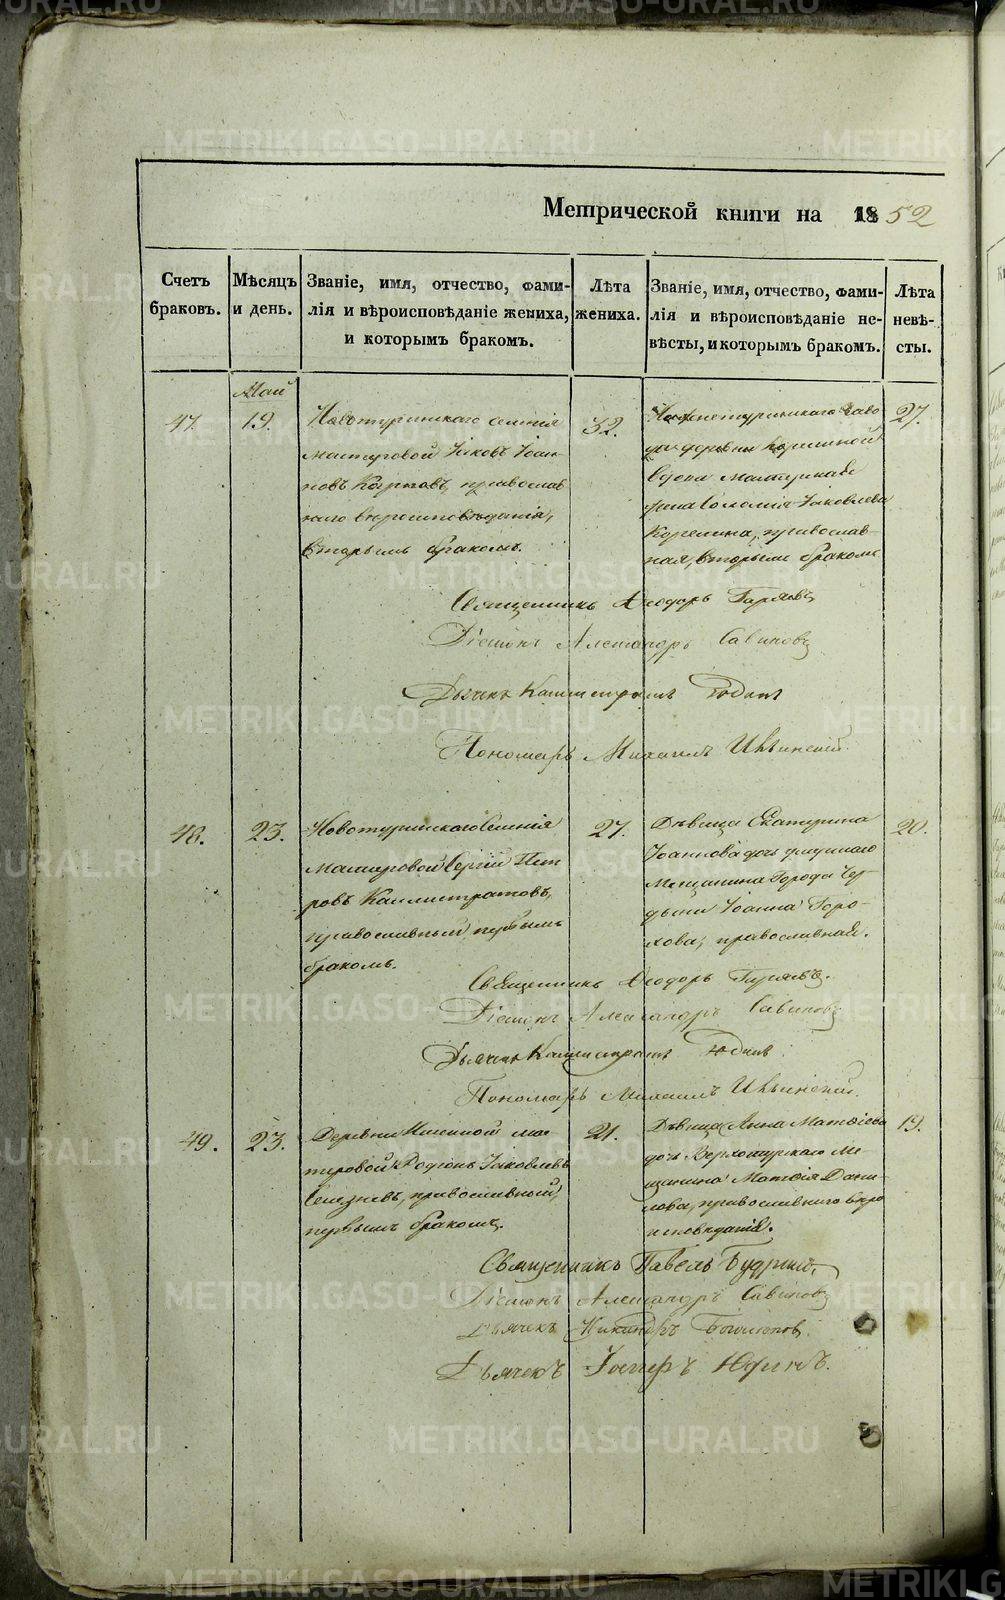 Метрической книги на 1852
Счетъ браковъ.
Мѣсяцъ и день.
Званіе, имя, отчество, фами-
лія и вѣроисповѣданіе жениха,
и которымъ бракомъ.
Лѣта жениха.
Званіе, имя, отчество, фами-
лія и вѣроисповѣданіе не-
вѣсты, и которымъ бракомъ.
Лѣта невѣ-
сты.
Май
47.
19.
Новотуринскаго селенія
мастеровой Іаковъ Іоан-
новъ Карповъ, православ
наго вѣроисповѣданія,
вторымъ бракомъ.
32.
Нижнетуринскаго заво
да деревни
вдова мастерская
Іаковлева
Корелина, православ-
ная, вторымъ бракомъ
27.
Священникъ Ѳеодоръ
Діаконъ Александръ Савиновъ
Дьячекъ Каллистратъ Юдинъ
Пономарь Михаилъ Ивѣинский
48.
23.
Новотуринскаго селенія
мастеровой Сергій Пет
ровъ Каллистратовъ,
православный первымъ
бракомъ.
27.
Дѣвица Екатерина
Іоаннова дочь
мѣщанина Города Чер-
дыни Іоанна Горо-
хова, православная.
20.
Священникъ Ѳеодоръ
Діаконъ Александръ Савиновъ
Дьячекъ Каллистратъ Юдинъ
Пономарь Михаилъ Ивѣинский.
49.
23.
Деревни Именной мас
теровой Родіонъ Іаковлевъ
Селезневъ, православный,
первымъ бракомъ.
21.
Дѣвица Анна Матѳіева
дочь Верхотурскаго Мѣ-
щанина Матѳія Дани-
лова, православнаго вѣро
исповѣданія.
19.
Священникъ Павелъ Будринъ,
Діаконъ Александръ Савиновъ
Дьячекъ Никандръ
Дьячекъ Юдинъ.
METRIKI.GASO-URAL.RU